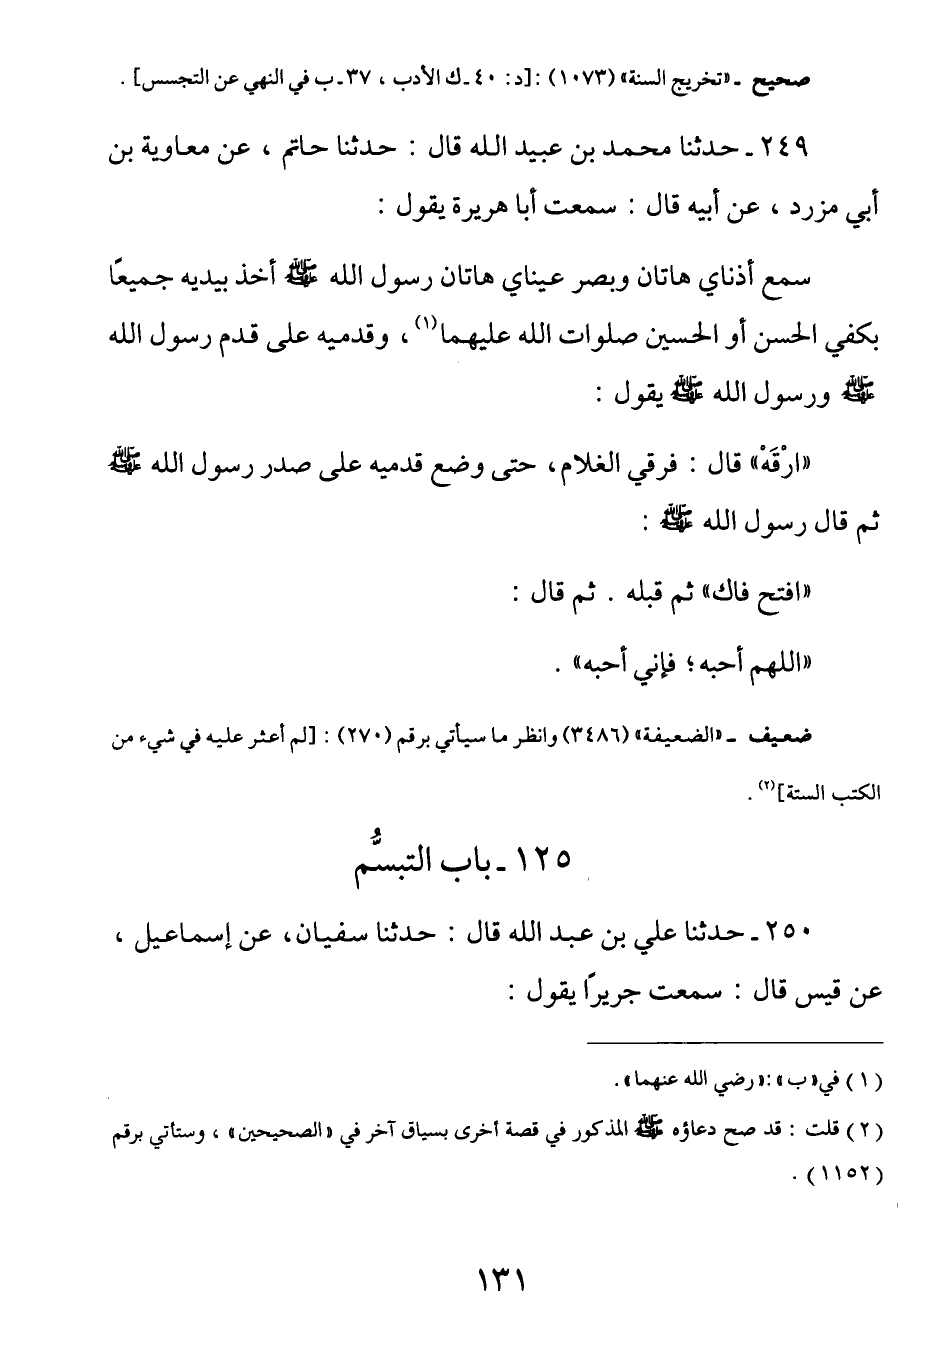 صحيح ـ «تخريج السنة» (١٠٧٣) : [د: ٤٠ ـ ك الأدب ، ٣٧ ـ ب في النهي عن التجسس] .
٢٤٩ ـ حدثنا محمد بن عبيد الله قال : حدثنا حاتم ، عن معاوية بن
أبي مزرد ، عن أبيه قال : سمعت أبا هريرة يقول :
سمع أذناي هاتان وبصر عيناي هاتان رسول الله ﷺ أخذ بيديه جميعًا
بكفي الحسن أو الحسين صلوات الله عليهما(١) ، وقدميه على قدم رسول الله
ﷺ ورسول الله ﷺ يقول :
«ارْقَهْ» قال : فرقي الغلام، حتى وضع قدميه على صدر رسول الله ﷺ
ثم قال رسول الله ﷺ :
«افتح فاك» ثم قبله . ثم قال :
«اللهم أحبه؛ فإني أحبه» .
ضعيف ـ «الضعيفة» (٣٤٨٦) وانظر ما سيأتي برقم (٢٧٠) : [لم أعثر عليه في شيء من
الكتب الستة](٢) .
١٢٥ ـ باب التبسُّم
٢٥٠ ـ حدثنا علي بن عبد الله قال : حدثنا سفيان، عن إسماعيل ،
عن قيس قال : سمعت جريرًا يقول :
(١) في «ب» : «رضي الله عنهما» .
(٢) قلت : قد صح دعاؤه ﷺ المذكور في قصة أخرى بسياق آخر في «الصحيحين» ، وستأتي برقم
(١١٥٢) .
١٣١